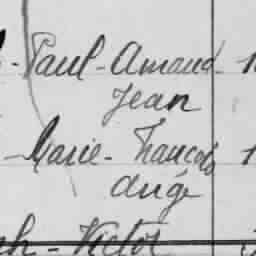 - Paul - Amand - 1
Jean
- Marie - François 1
Ange
ph - Victor